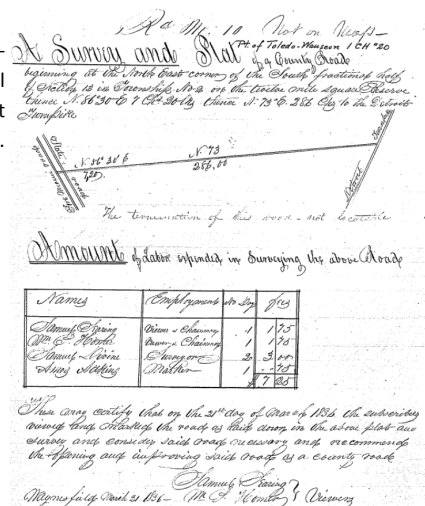 Rd No. 10 Not on Maps
A Survey and Plat of a County Road
Pt of Toledo-Wauseon I CH #20
beginning at the North East corner of the South fractional half
of Section 12 in Township No 2 on the twelve mile square Reserve
thence N. 86° 30 E 7 Ch 20 lks thence N 73° E. 286 Chs to the Detroit
Turnpike
State road
N. 86° 30 E
7.20
N. 73
286.00
Detroit Turnpike
The termination of this road - not locatable
Amount of Labor expended in Surveying the above Road
Names Employment No Days
Samuel Searing Viewer & Chainman 1 1 75
Viewer & Chainman 1 1 75
Samuel Surveyor 2 3 00
1 .. 75
$ 7 25
These may certify that on the 21st day of March 1836 the subscribers
viewed and marked the road as laid down in the above plat and
survey and consider said road necessary and recommend
the opening and improving said road as a county road
Samuel Searing
Maynesfield March 21 1836 - Viewers